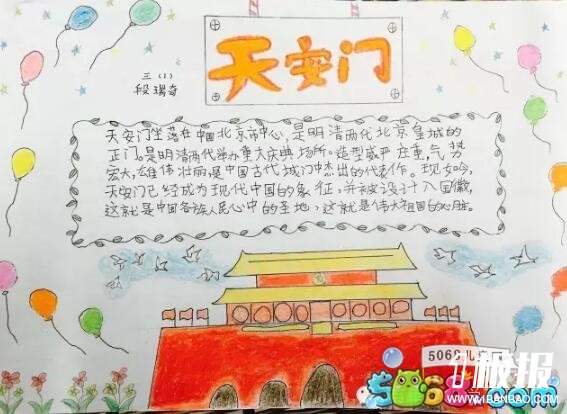 天安门
三(1)
段瑞奇
天安门坐落在中国北京市中心,是明清两代北京皇城的
正门。是明清两代举办重大庆典场所。造型威严庄重,气势
宏大,雄伟壮丽,是中国古代城门中杰出的代表作。现如今,
天安门已经成为现代中国的象征,并被设计入国徽,
这就是中国各族人民心中的圣地,这就是伟大祖国的心脏。
506 儿
板报
WWW.1BANBAO.COM